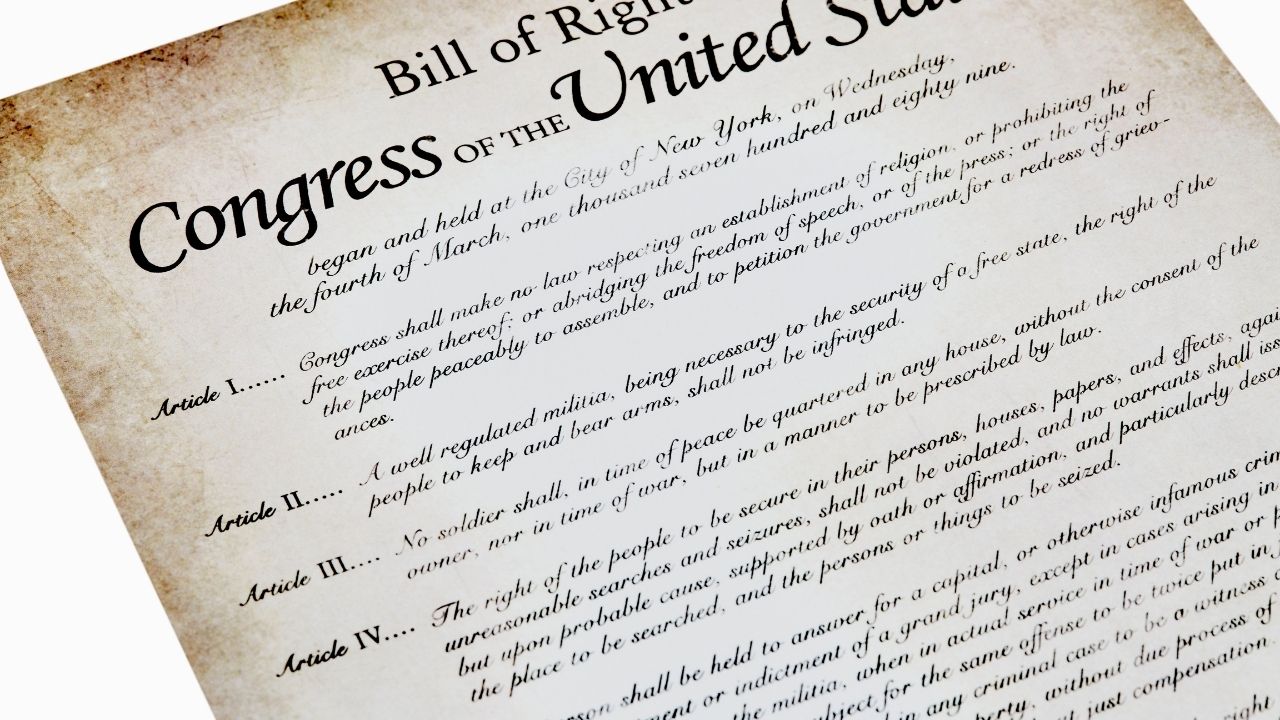 Bill of Right
Congress OF THE United Sta
began and held at the City of New York, on Wednesday,
the fourth of March, one thousand seven hundred and eighty nine.
Article I...... Congress shall make no law respecting an establishment of religion, or prohibiting the
free exercise thereof; or abridging the freedom of speech, or of the press; or the right of
the people peaceably to assemble, and to petition the government for a redress of griev-
ances.
Article II..... A well regulated militia, being necessary to the security of a free state, the right of the
people to keep and bear arms, shall not be infringed.
Article III.... No soldier shall, in time of peace be quartered in any house, without the consent of the
owner, nor in time of war, but in a manner to be prescribed by law.
Article IV.... The right of the people to be secure in their persons, houses, papers, and effects, agai
unreasonable searches and seizures, shall not be violated, and no warrants shall iss
but upon probable cause, supported by oath or affirmation, and particularly descr
the place to be searched, and the persons or things to be seized.
erson shall be held to answer for a capital, or otherwise infamous crim
ment or indictment of a grand jury, except in cases arising in
the militia, when in actual service in time of war or p
ubject for the same offense to be twice put in j
in any criminal case to be a witness
perty, without due process of
ut just compensation.
right